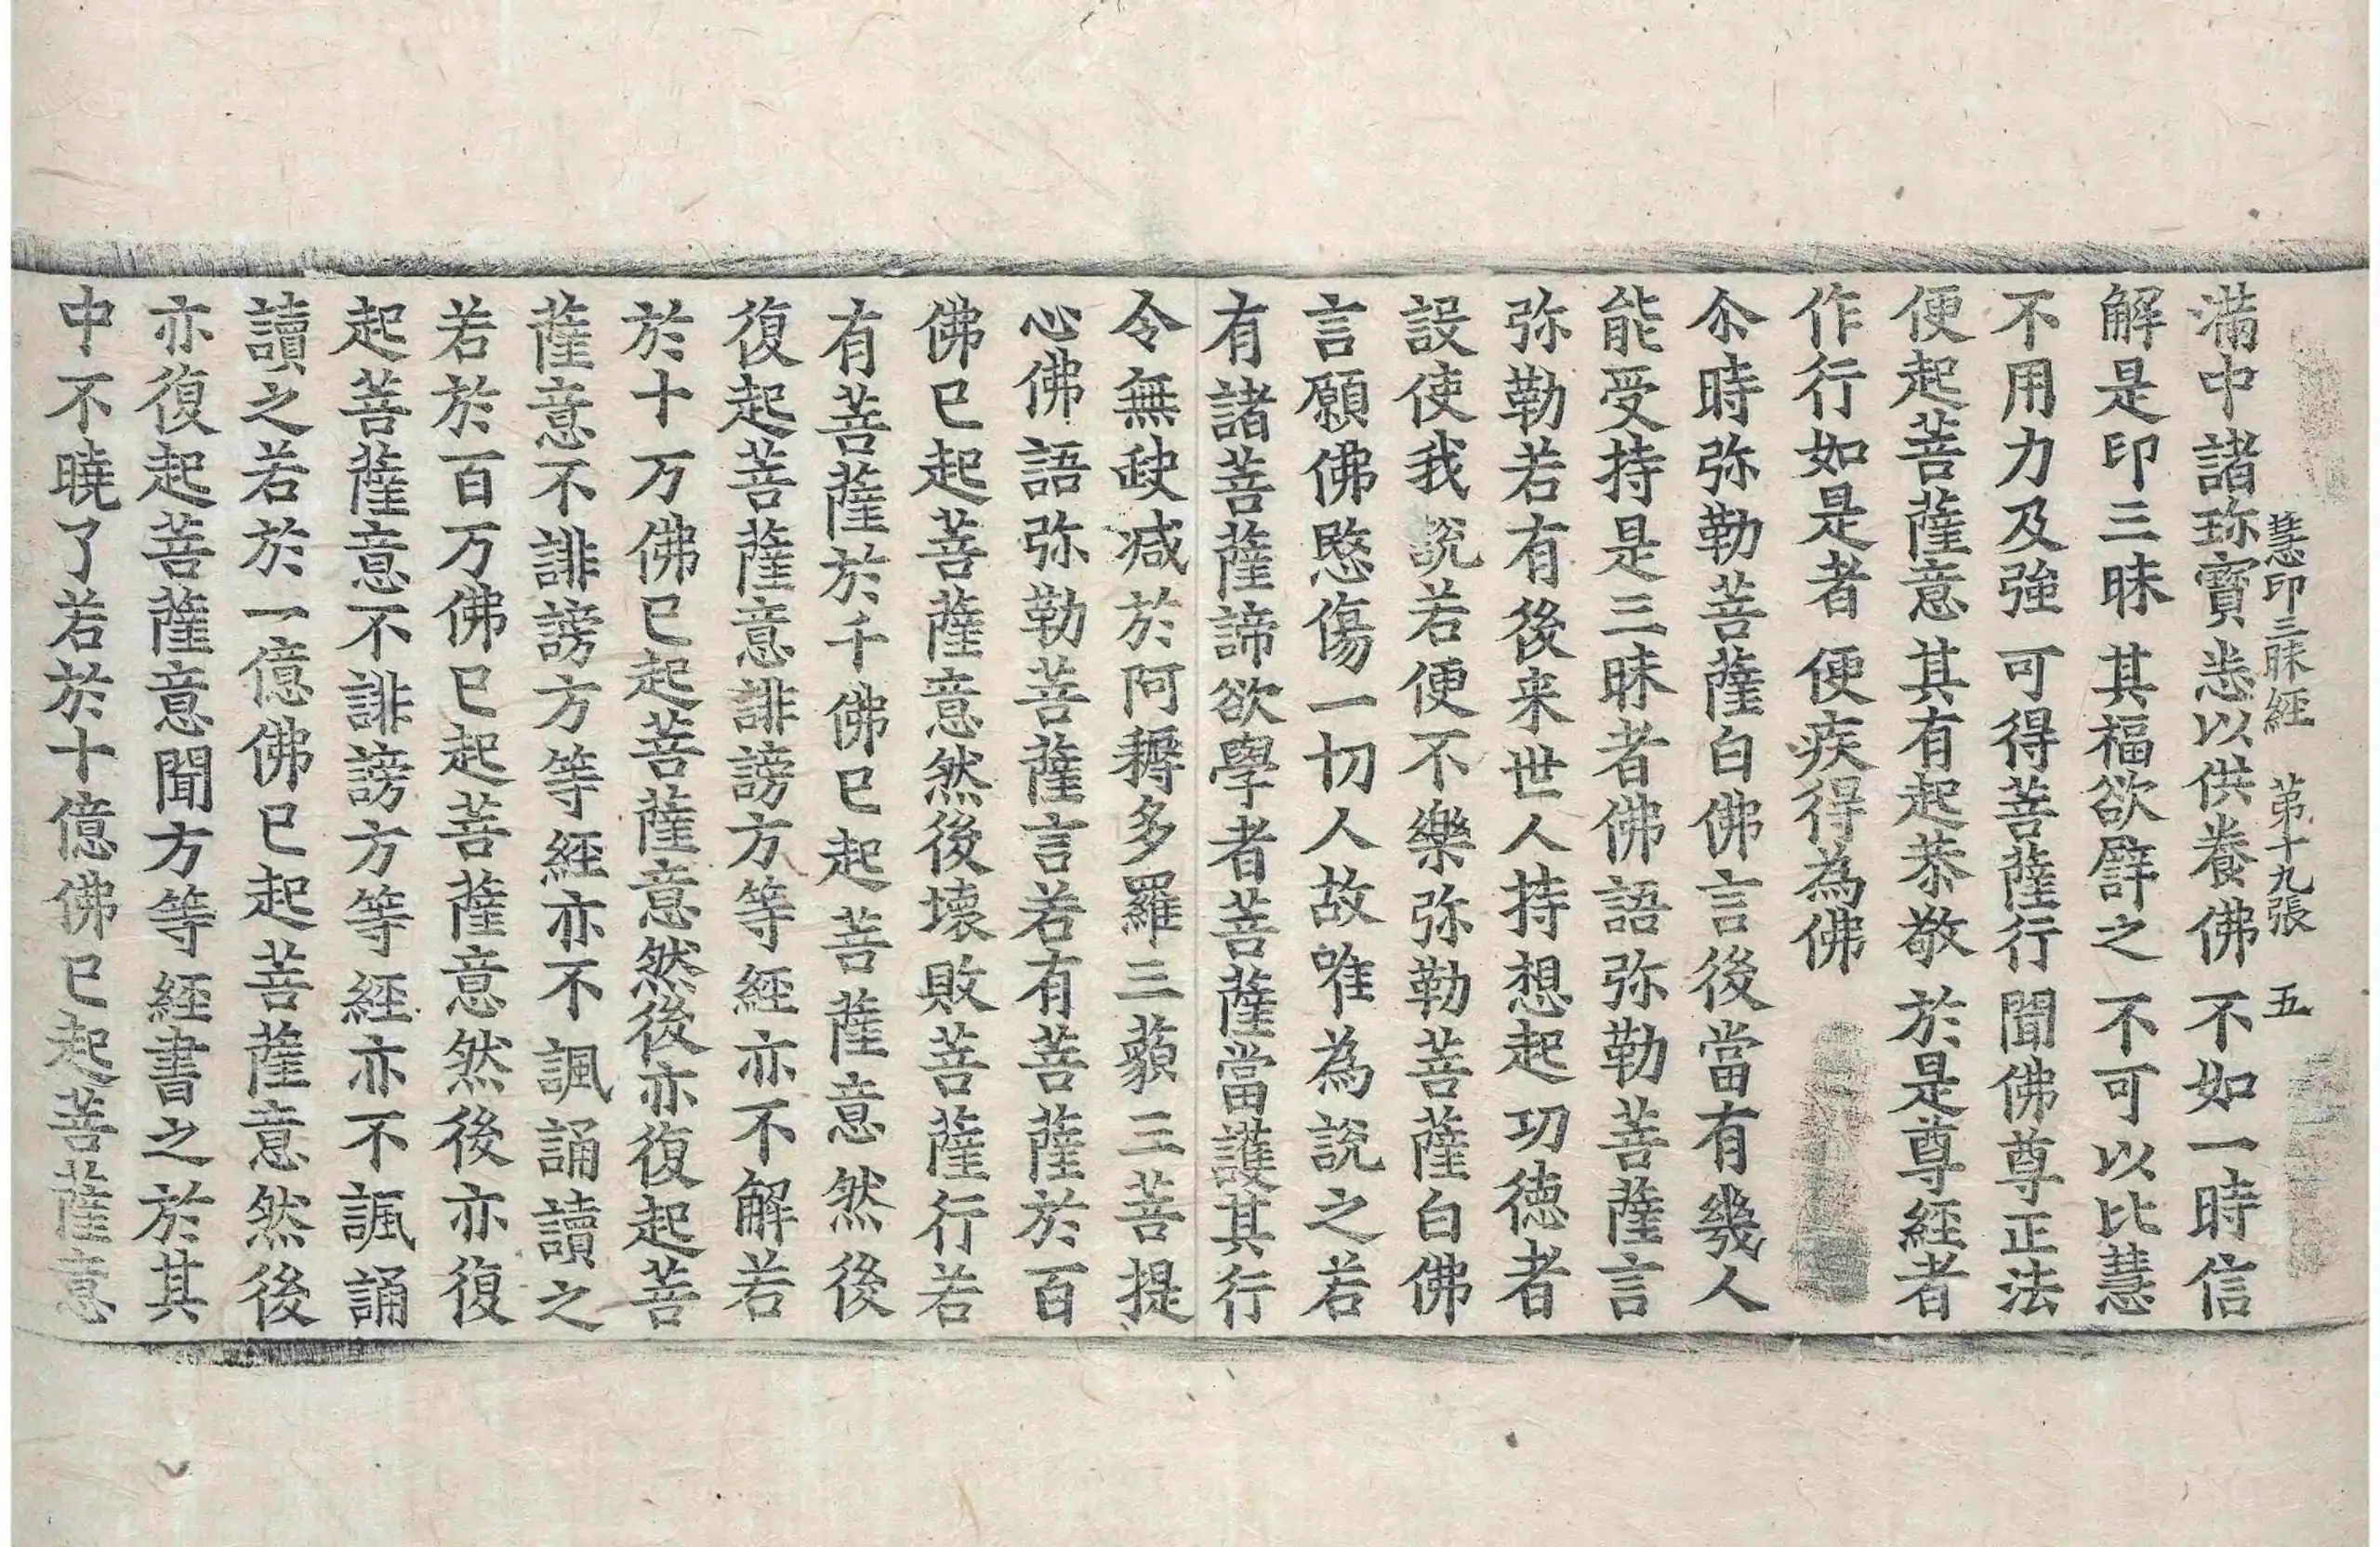 慧印三昧經　第十九張　五
滿中諸珎寳悉以供養佛　不如一時信
解是印三昧　其福欲譬之　不可以比慧
不用力及強　可得菩薩行　聞佛尊正法
便起菩薩意　其有起恭敬　於是尊經者
作行如是者　便疾得為佛
尒時弥勒菩薩白佛言後當有幾人
能受持是三昧者佛語弥勒菩薩言
弥勒若有後来世人持想起功德者
設使我說若便不樂弥勒菩薩白佛
言願佛愍傷一切人故唯為說之若
有諸菩薩諦欲學者菩薩當護其行
令無䟽减於阿耨多羅三藐三菩提
心佛語弥勒菩薩言若有菩薩於百
佛已起菩薩意然後壞敗菩薩行若
有菩薩於千佛已起菩薩意然後
復起菩薩意誹謗方等經亦不解若
於十万佛已起菩薩意然後亦復起菩
薩意不誹謗方等經亦不諷誦讀之
若於百万佛已起菩薩意然後亦復
起菩薩意不誹謗方等經亦不諷誦
讀之若於一億佛已起菩薩意然後
亦復起菩薩意聞方等經書之於其
中不曉了若於十億佛已起菩薩意